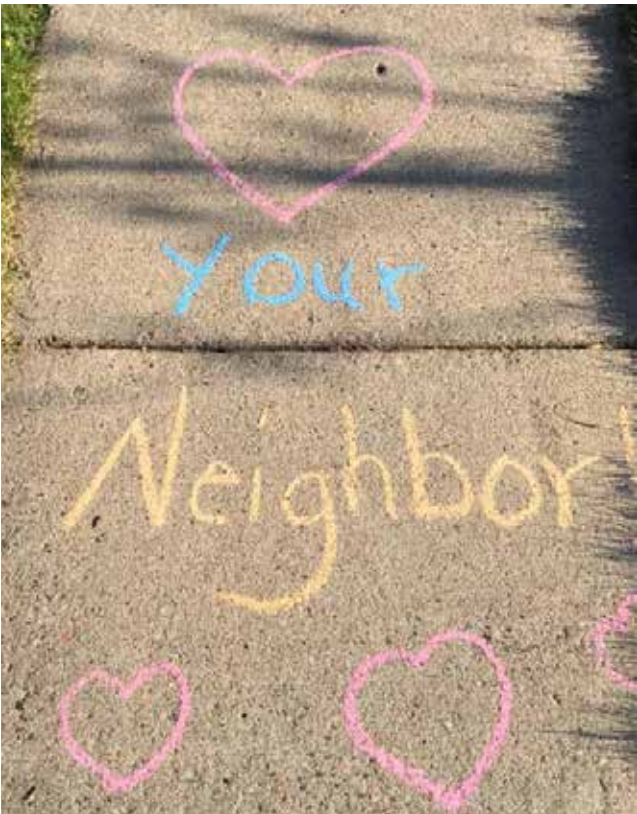 Your
Neighbor!